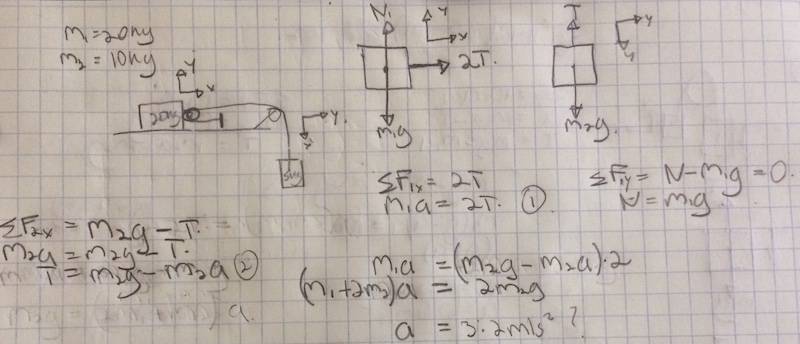 m₁=20kg
m₂=10kg
y
x
20kg
y
x
N
y
x
2T.
m₁g
T
y
x
m₂g.
ΣF₁ₓ = 2T
m₁a = 2T. ①
ΣF₁y = N-m₁g = 0.
N = m₁g.
ΣF₂ₓ = m₂g - T.
m₂a = m₂g - T.
T = m₂g - m₂a ②
m₁a = (m₂g - m₂a)·2
(m₁+2m₂)a = 2m₂g
a = 3.2m/s² ?